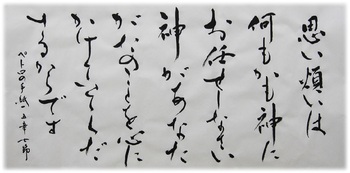 思い煩いは
何もかも神に
お任せしなさい
神があなた
がたのことを心に
かけていてくだ
さるからです
ペトロの手紙一 五章 七節